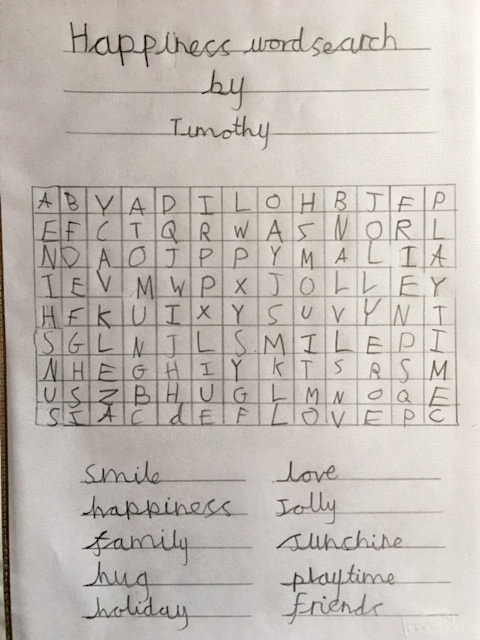 Happiness wordsearch
by
Timothy
A B Y A D I L O H B J F P
E F C T Q R W A S N O R L
N D A O J P P Y M A L I A
I E V M W P X J O L L E Y
H F K U I X Y S U V Y N T
S G L N J L S M I L E P I
N H E G H I Y K T S R S M
U S Z B H U G L M N O Q E
S I A C d E F L O V E P C
smile love
happiness Jolly
family sunshine
hug playtime
holiday friends